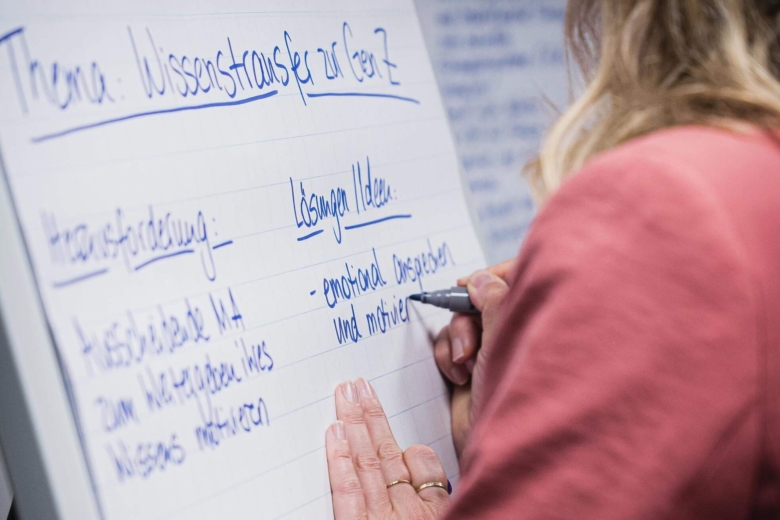 Thema: Wissenstransfer zur Gen Z
Herausforderung:
Ausscheidende MA
zum Weitergeben ihres
Wissens motivieren
Lösungen / Ideen:
- emotional ansprechen
und motivier